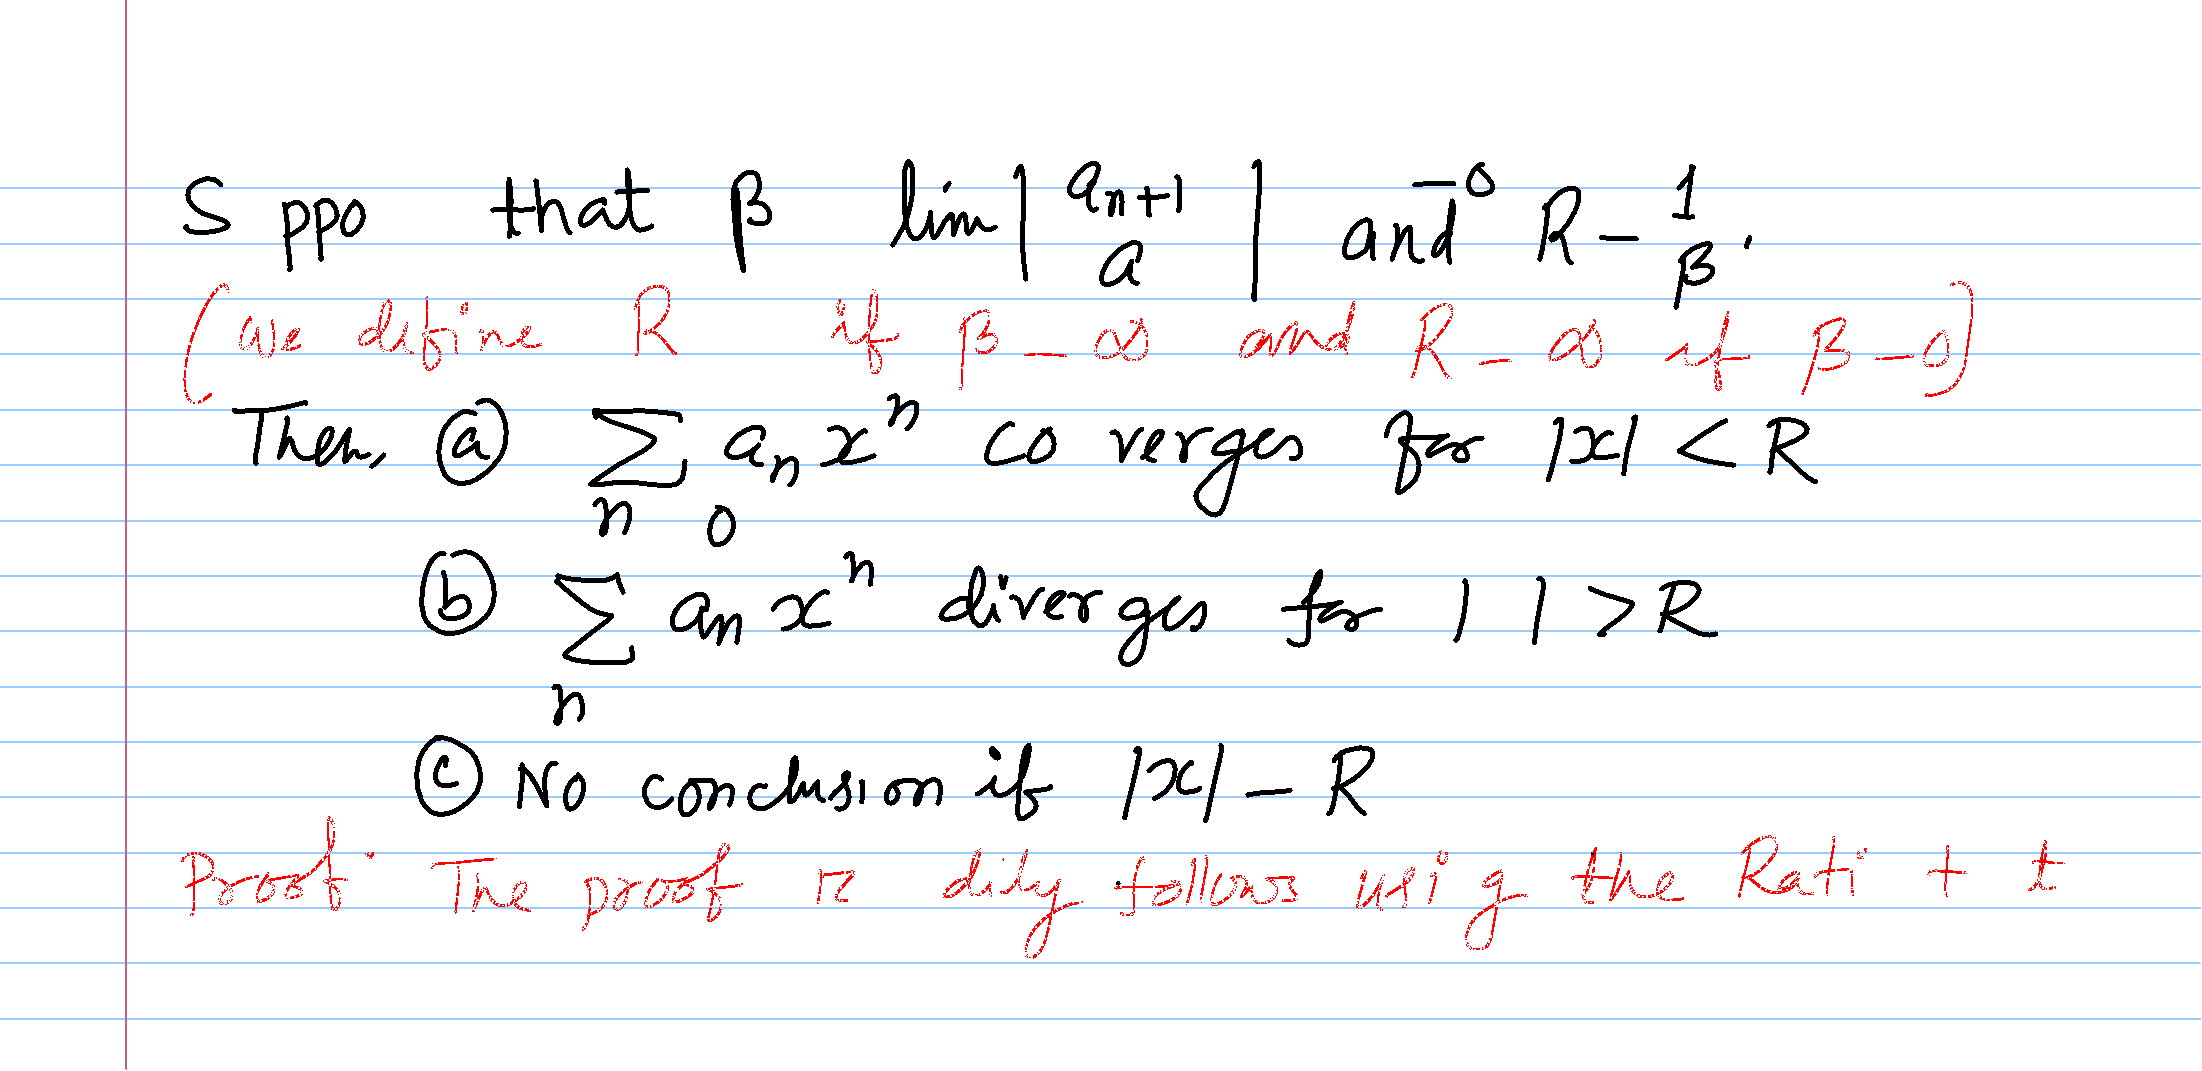 S ppo that β lim | a_{n+1} / a | and R - 1/β.
(We define R if β - ∞ and R - ∞ if β - 0)
Then, ⓐ ∑_{n 0} a_n x^n co verges for |x| < R
ⓑ ∑_{n} a_n x^n diverges for | | > R
ⓒ No conclusion if |x| - R
Proof: The proof dily follows usi g the Rati t t